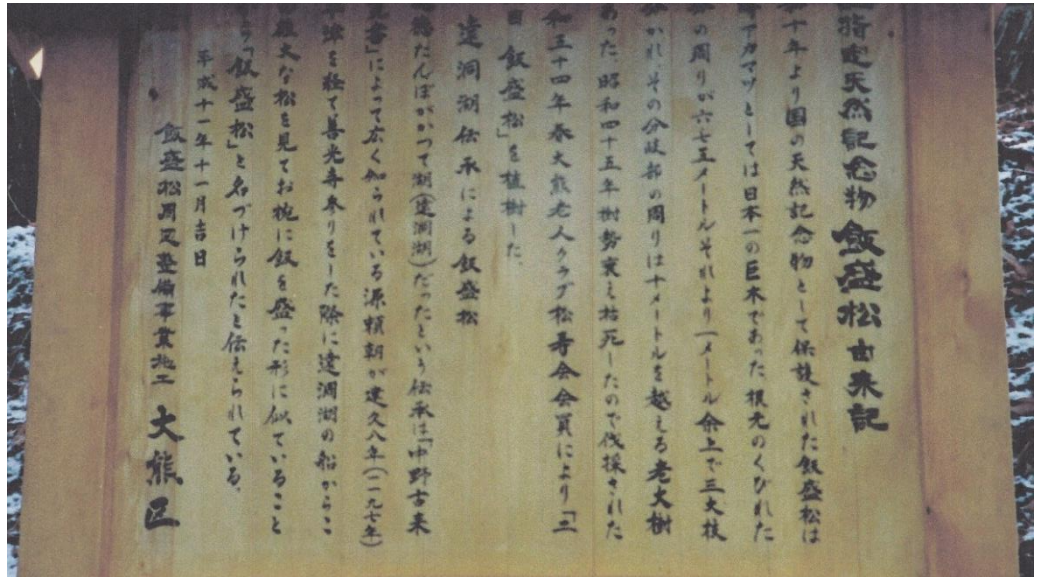 指定天然記念物 飯盛松 由来記
十年より国の天然記念物として保護された飯盛松は
アカマツとしては日本一の巨木であった。根元のくびれた
の周りが六七五メートルそれより一メートル余上で三大枝
かれ、その分岐部の周りは十メートルを越える老大樹
あった 昭和四十五年樹勢衰え枯死したので伐採された
和三十四年春大熊老人クラブ松寿会会員により「三
目 飯盛松」を植樹した。
遠洞湖伝承による飯盛松
たんぼがかつて湖(遠洞湖)だったという伝承は「中野古来
書」によって広く知られている源頼朝が建久八年(一一九七年)
津を経て善光寺参りをした際に遠洞湖の船からこ
雄大な松を見てお椀に飯を盛った形に似ていること
ら「飯盛松」と名づけられたと伝えられている。
平成十一年十一月吉日
飯盛松周辺整備事業竣工 大熊区